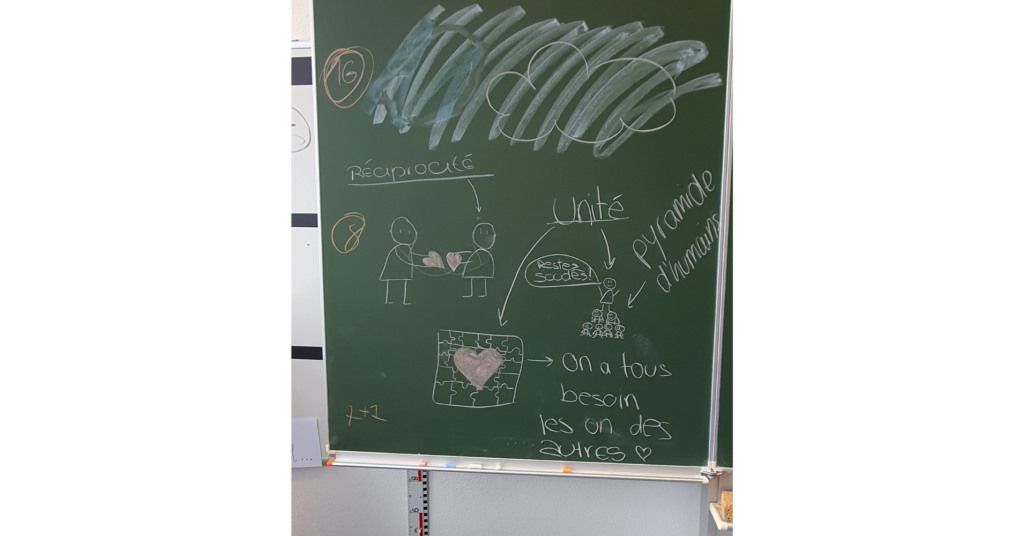 16
RÉCIPROCITÉ
8
Unité
pyramide
d'humains
Restez
soudés!
On a tous
besoin
les un des
autres ♡